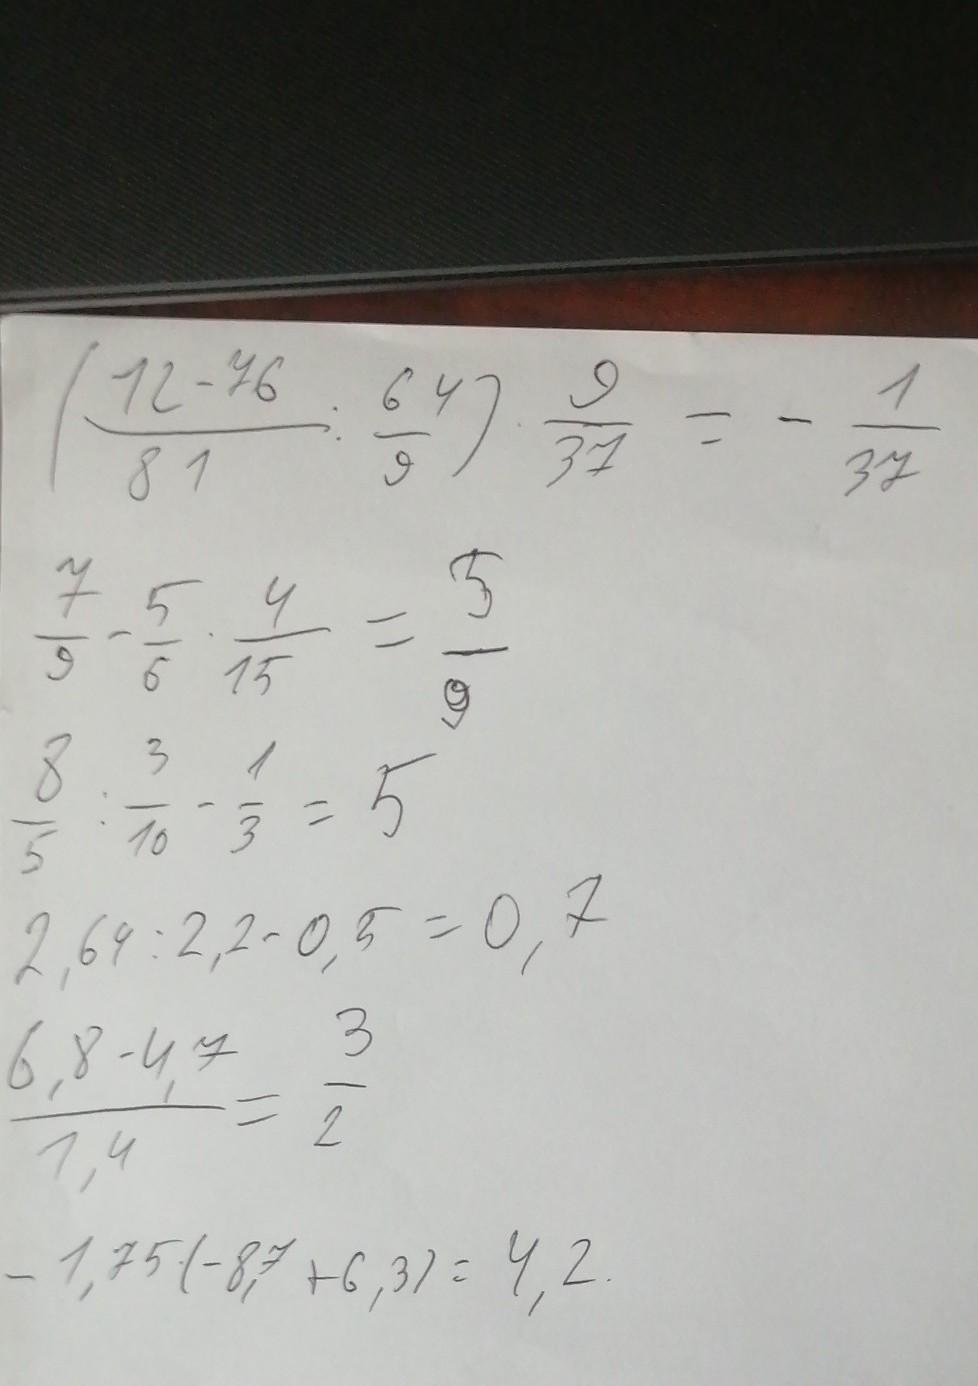 (12-76/81 : 64/9) · 9/37 = - 1/37
7/9 - 5/6 · 4/15 = 5/9
8/5 : 3/10 - 1/3 = 5
2,64 : 2,2 - 0,5 = 0,7
6,8-4,7/1,4 = 3/2
- 1,75·(-8,7+6,3) = 4,2.